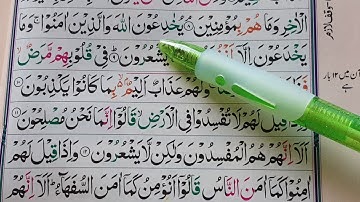 الْاٰخِرِ وَمَا هُمْ بِمُؤْمِنِیْنَ ۘ۝۸ یُخٰدِعُوْنَ اللّٰهَ وَالَّذِیْنَ اٰمَنُوْا ۚ وَمَا
یَخْدَعُوْنَ اِلَّاۤ اَنْفُسَهُمْ یَشْعُرُوْنَ ؕ۝۹ فِیْ قُلُوْبِهِمْ مَّرَضٌ ۙ
وَلَهُمْ عَذَابٌ اَلِیْمٌۢ ۙ۬ بِمَا كَانُوْا یَكْذِبُوْنَ ۝۱۰
وَاِذَا قِیْلَ لَهُمْ لَا تُفْسِدُوْا فِی الْاَرْضِ ۙ قَالُوْۤا اِنَّمَا نَحْنُ مُصْلِحُوْنَ ۝۱۱
اَلَاۤ اِنَّهُمْ هُمُ الْمُفْسِدُوْنَ وَلٰكِنْ لَّا یَشْعُرُوْنَ ۝۱۲ وَاِذَا قِیْلَ لَهُمْ
اٰمِنُوْا كَمَاۤ اٰمَنَ النَّاسُ قَالُوْۤا اَنُؤْمِنُ كَمَاۤ اٰمَنَ السُّفَهَآءُ ؕ اَلَاۤ اِنَّهُمْ